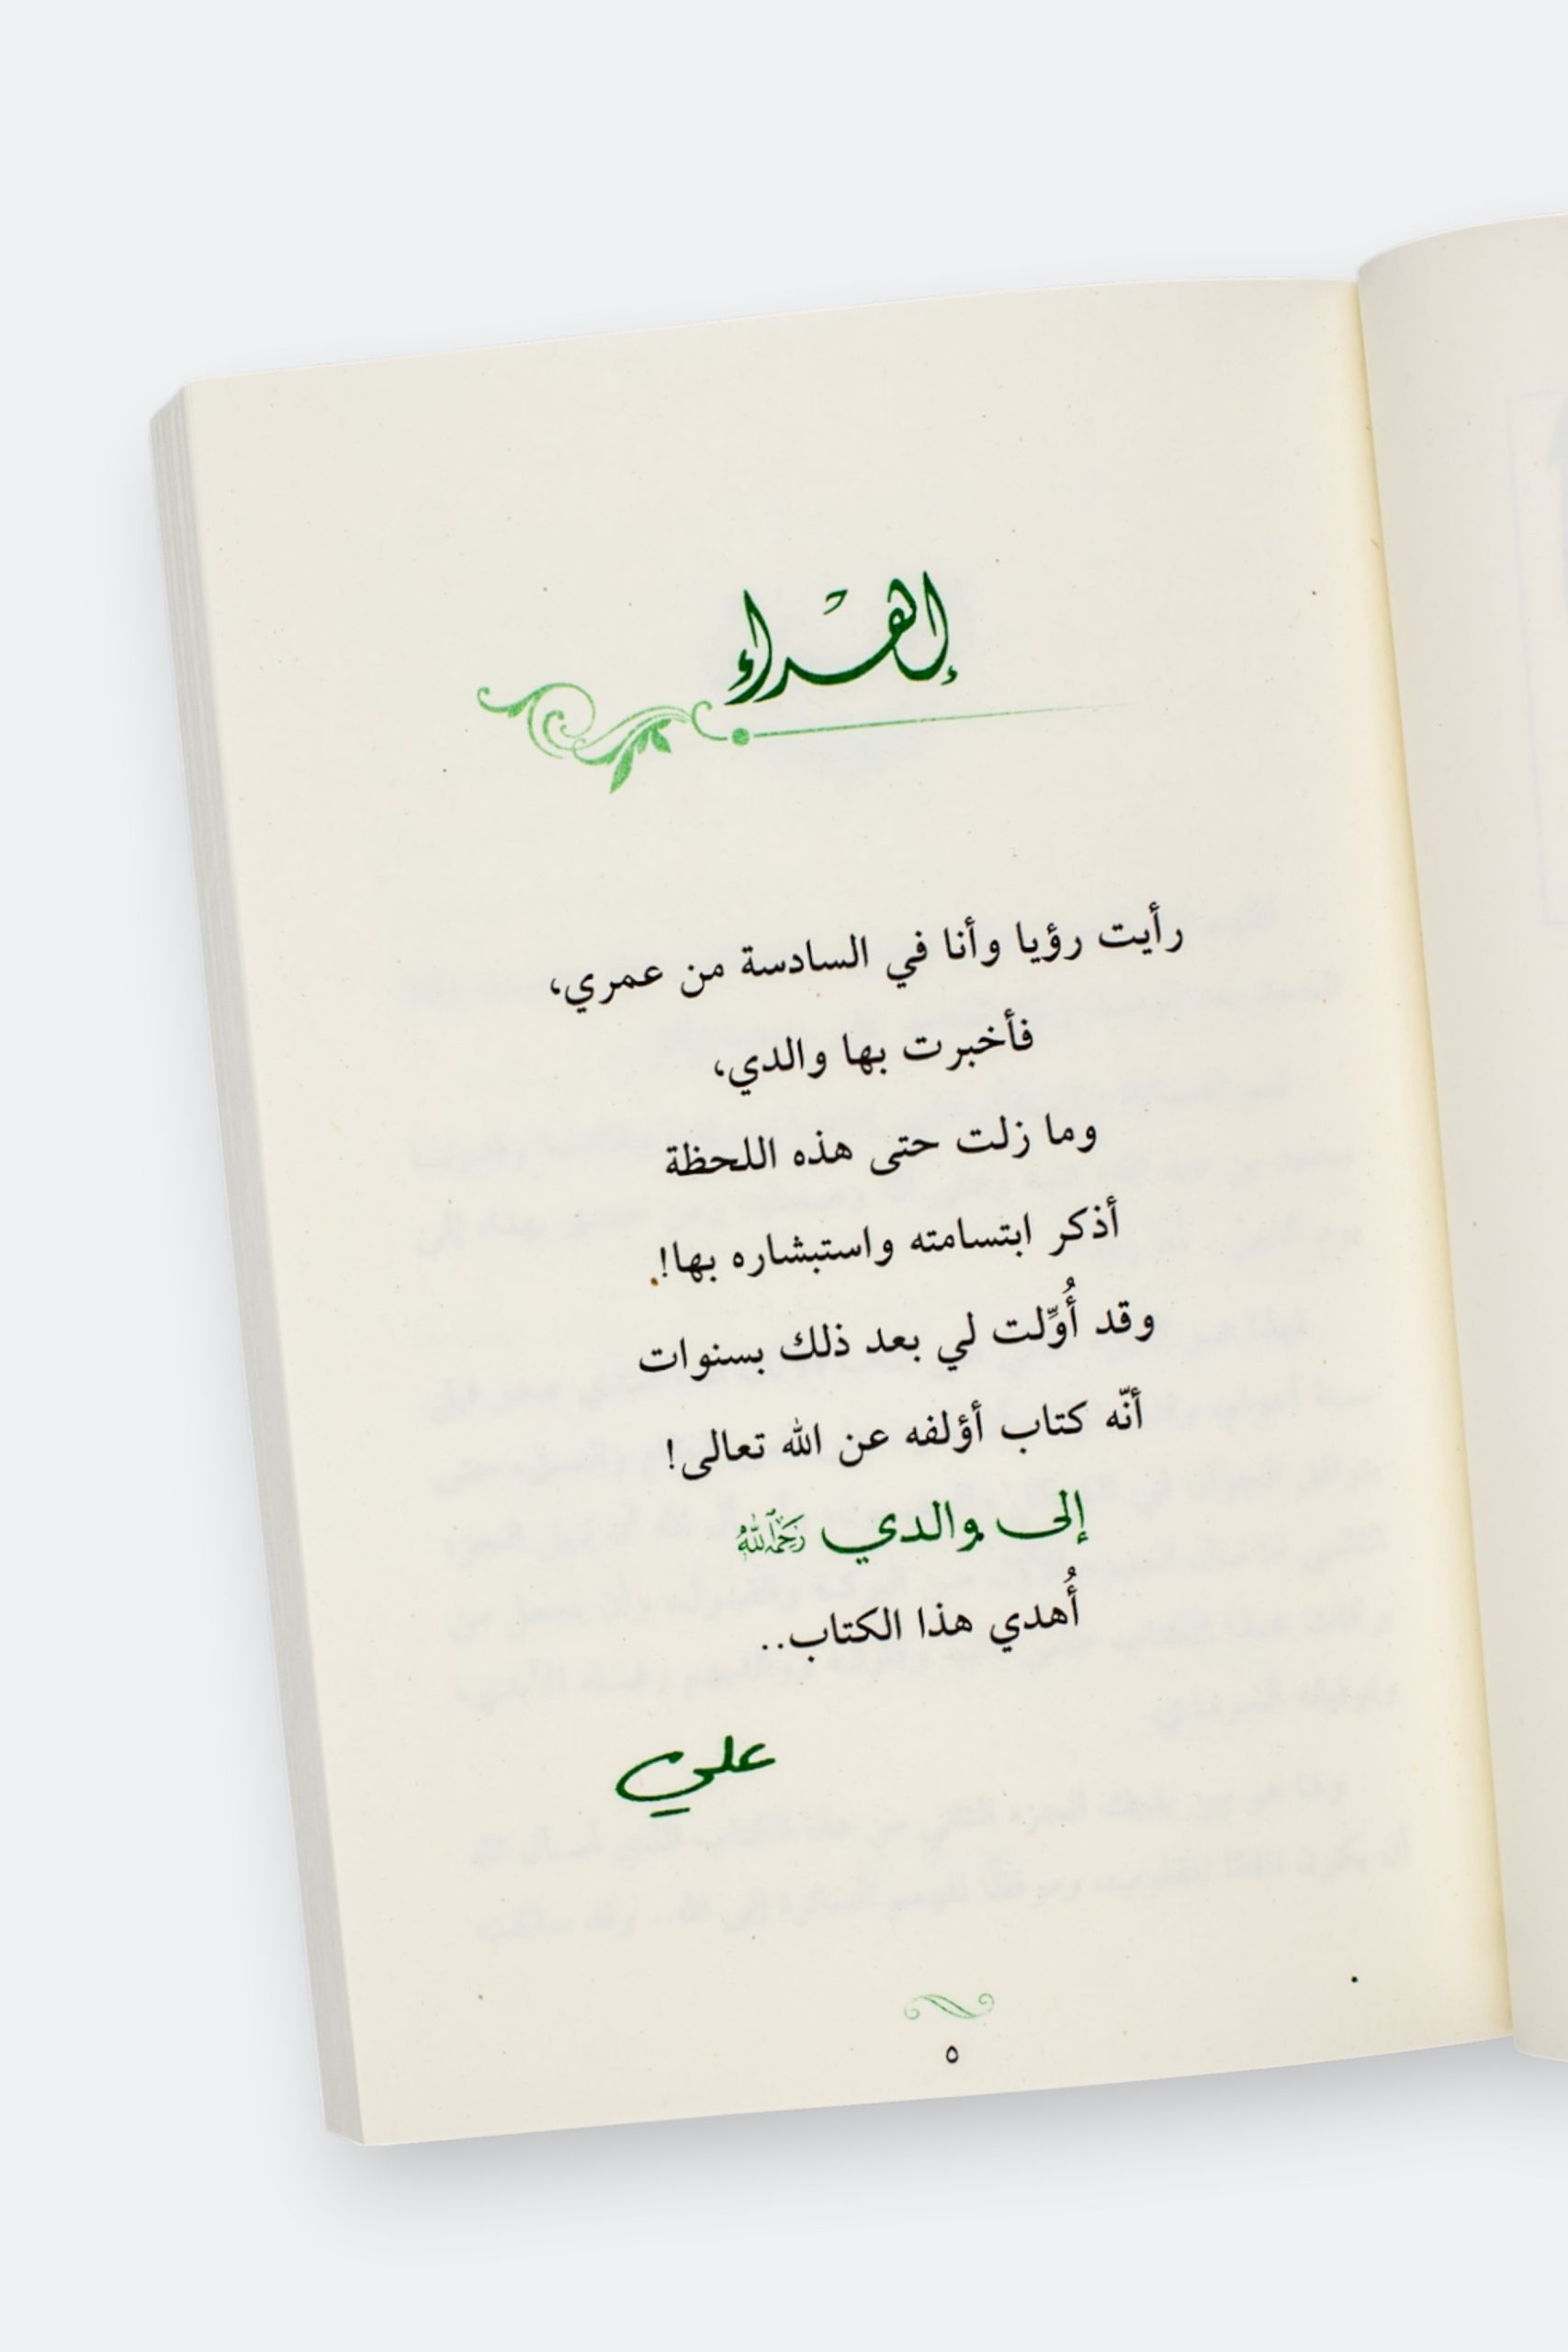 إهداء
رأيت رؤيا وأنا في السادسة من عمري،
فأخبرت بها والدي،
وما زلت حتى هذه اللحظة
أذكر ابتسامته واستبشاره بها!
وقد أُوِّلت لي بعد ذلك بسنوات
أنّه كتاب أؤلفه عن الله تعالى!
إلى والدي رَحِمَهُ ٱللَّهُ
أُهدي هذا الكتاب..
علي
٥